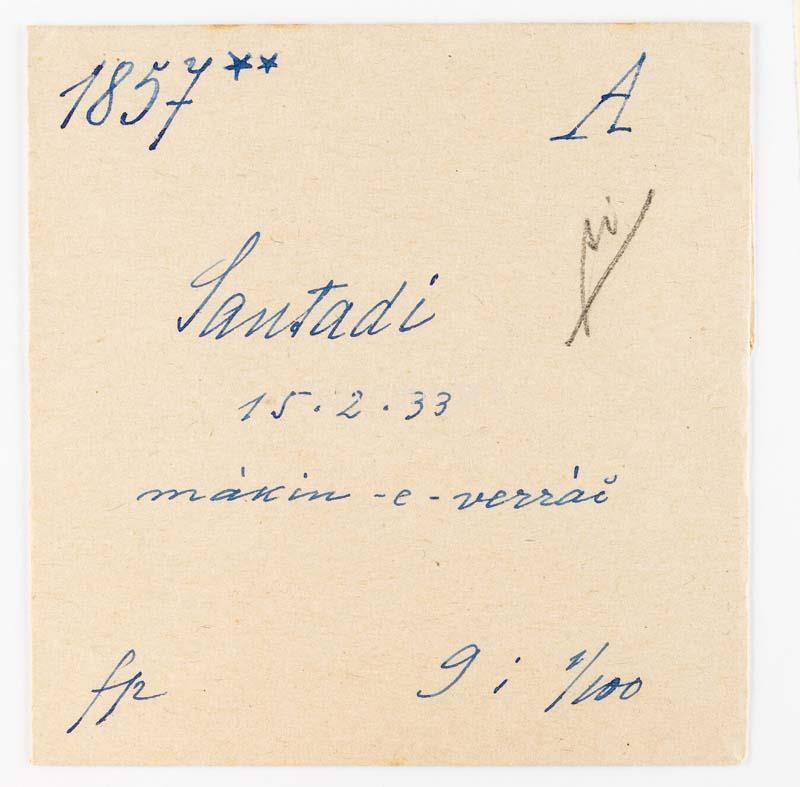 1857** A
si
Santadi
15.2.33
mákin-e-verráč
fp 9 i 1/100